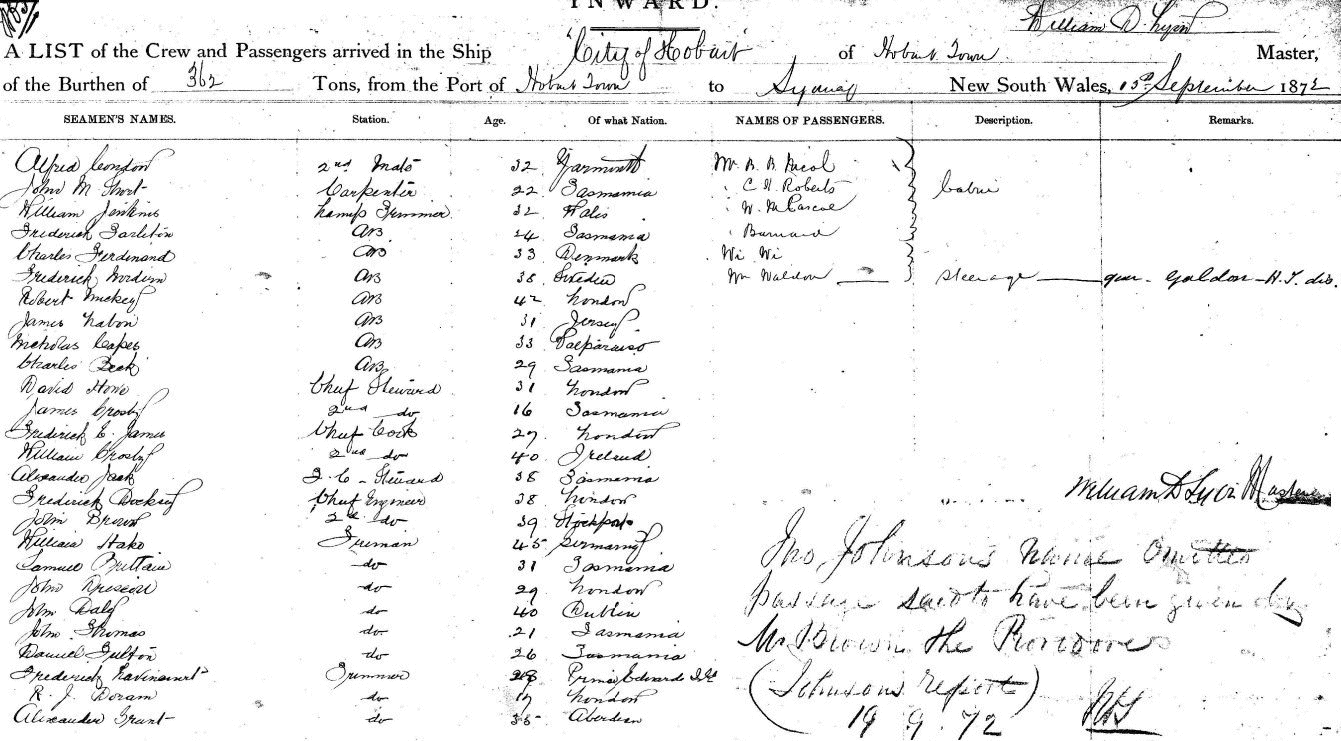 INWARD.
William D Lyon
A LIST of the Crew and Passengers arrived in the Ship "City of Hobart" of Hobart Town Master,
of the Burthen of 362 Tons, from the Port of Hobart Town to Sydney New South Wales, 13th September 1872
SEAMEN'S NAMES. Station. Age. Of what Nation. NAMES OF PASSENGERS. Description. Remarks.
Alfred Condon 2nd Mate 32 Yarmouth Mr
John M Short Carpenter 22 Tasmania " C H Roberts Cabin
William Jenkins Lamps Trimmer 32 Wales " W.
Frederick Tarleton AB 24 Tasmania " Barnard
Charles Ferdinand AB 33 Denmark Wi Wi
Frederick AB 38 Sweden Wm Waldon steerage
Robert Mickey AB 42 London
James Labon AB 31 Jersey
Nicholas Capes AB 33 Valparaiso
Charles Beck AB 29 Tasmania
David Howe Chief Steward 31 London
James Crosby 2nd do 16 Tasmania
Frederick E. James Chief Cook 27 London
William Crosby 2nd do 40 Ireland
Alexander Jack Steward 38 Tasmania
Frederick Chief Engineer 38 London William D Lyon Master
John Brown 2nd do 39 Stockport
William Hako Fireman 45 Germany Jno Johnson's name omitted
Samuel Brittain do 31 Tasmania
John Driscoll do 29 London passage said to have been given by
John Daly do 40 Dublin
John Thomas do 21 Tasmania Mr Brown the
Daniel Fulton do 26 Tasmania
Frederick Trimmer 28 Prince Edwards Isld (Johnsons report)
R. J. Doram do 19 London
Alexander Grant do 35 Aberdeen 19 9. 72